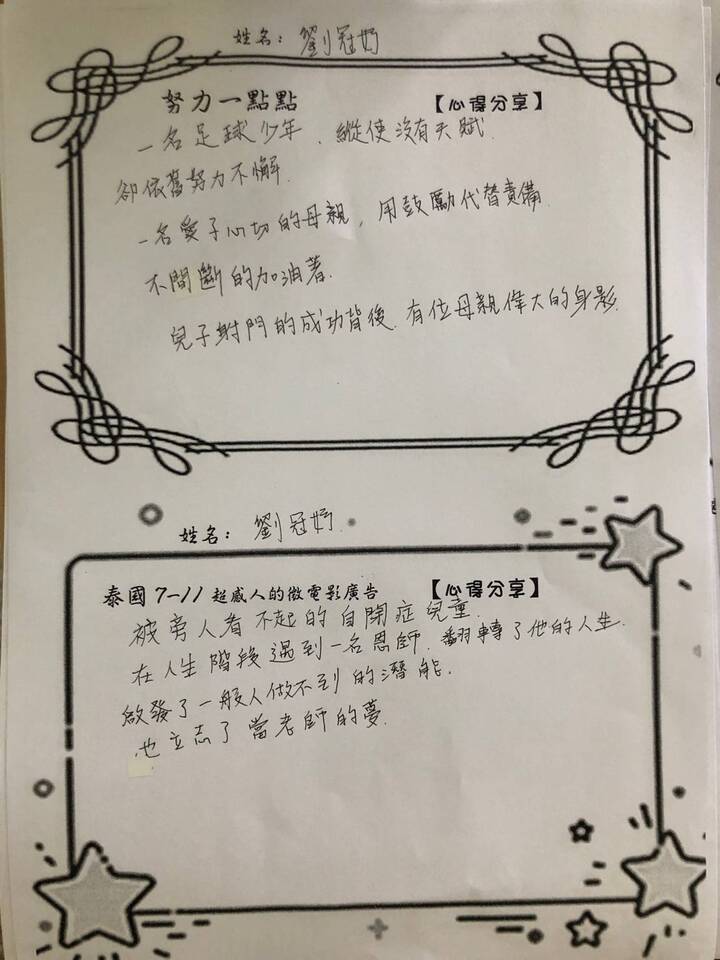 姓名：劉冠妤
努力一點點 【心得分享】
一名足球少年、縱使沒有天賦.
卻依舊努力不懈.
一名愛子心切的母親，用鼓勵代替責備
不間斷的加油著.
兒子射門的成功背後.有位母親偉大的身影.
姓名：劉冠妤.
泰國7-11超感人的微電影廣告 【心得分享】
被旁人看不起的自閉症兒童.
在人生階段遇到一名恩師.翻轉了他的人生.
啟發了一般人做不到的潛能.
也立志了當老師的夢.